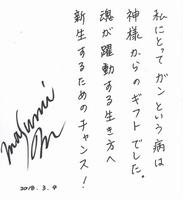 私にとってガンという病は
神様からのギフトでした。
魂が躍動する生き方へ
新生するためのチャンス！
2018.3.9